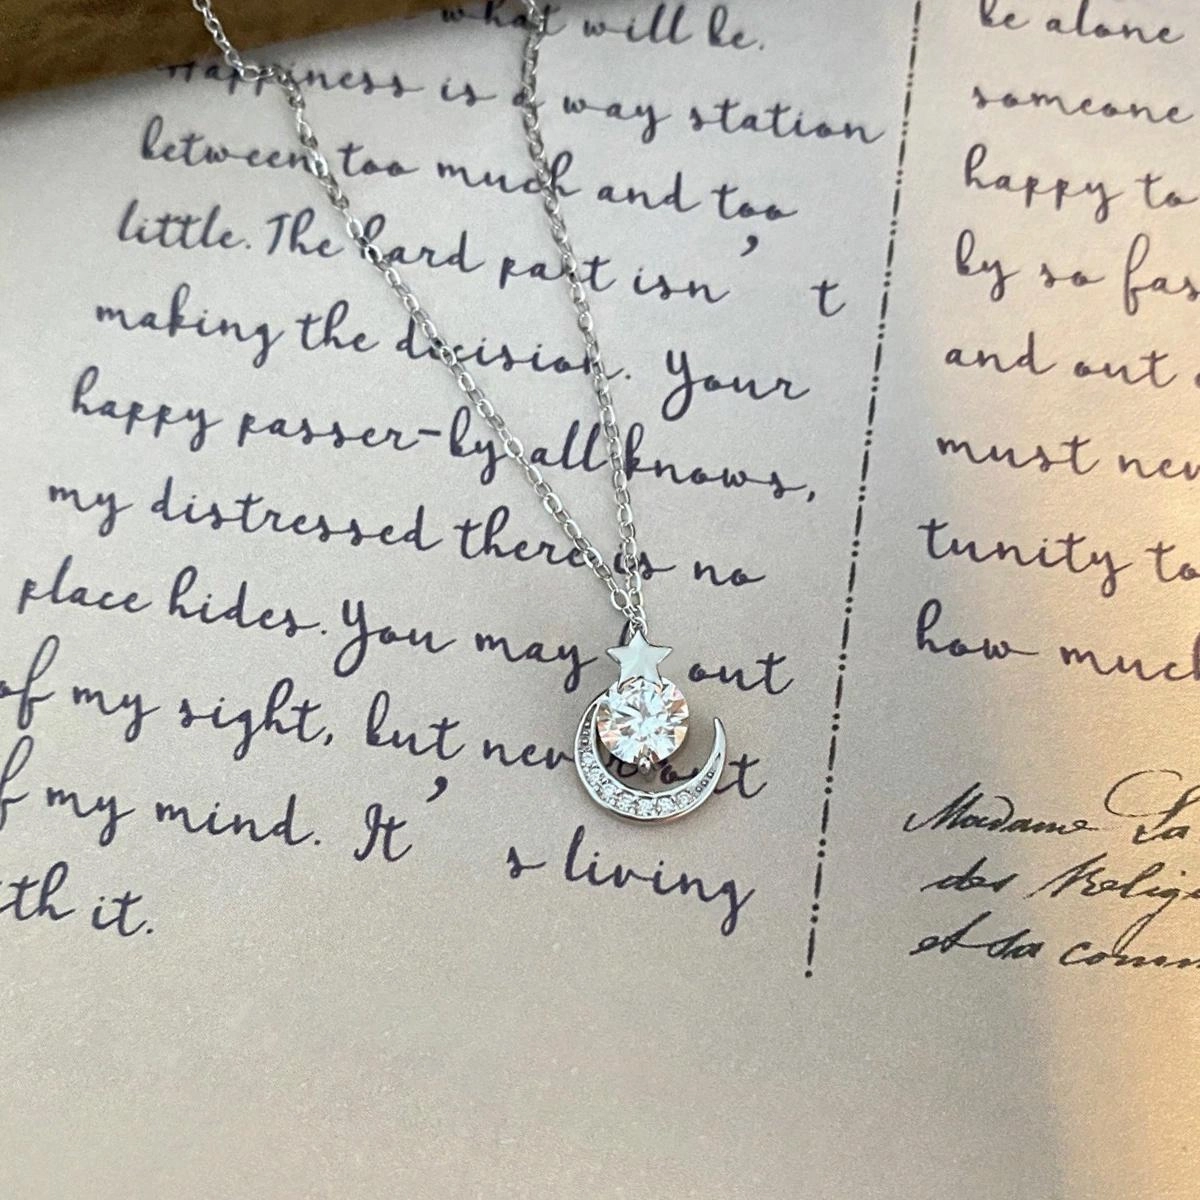 what will be.
Happiness is a way station
between too much and too
little. The hard part isn ’ t
making the decision. Your
happy passer-by all knows,
my distressed there is no
place hides. You may out
of my sight, but never out
of my mind. It ’ s living
ith it.
be alone
someone
happy to
by so fas
and out
must nev
tunity to
how much
Madame La
des Religi
et sa comm